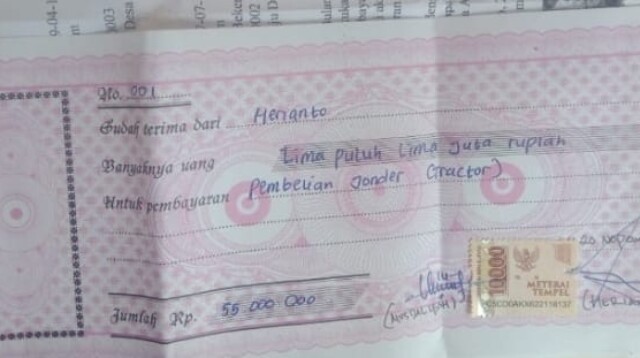 No. 001
Sudah terima dari Herianto
Banyaknya uang Lima puluh Lima Juta rupiah
Untuk pembayaran Pembelian Jonder (Tractor)
20 Nope
10000
METERAI
TEMPEL
Jumlah Rp. 55 000 000